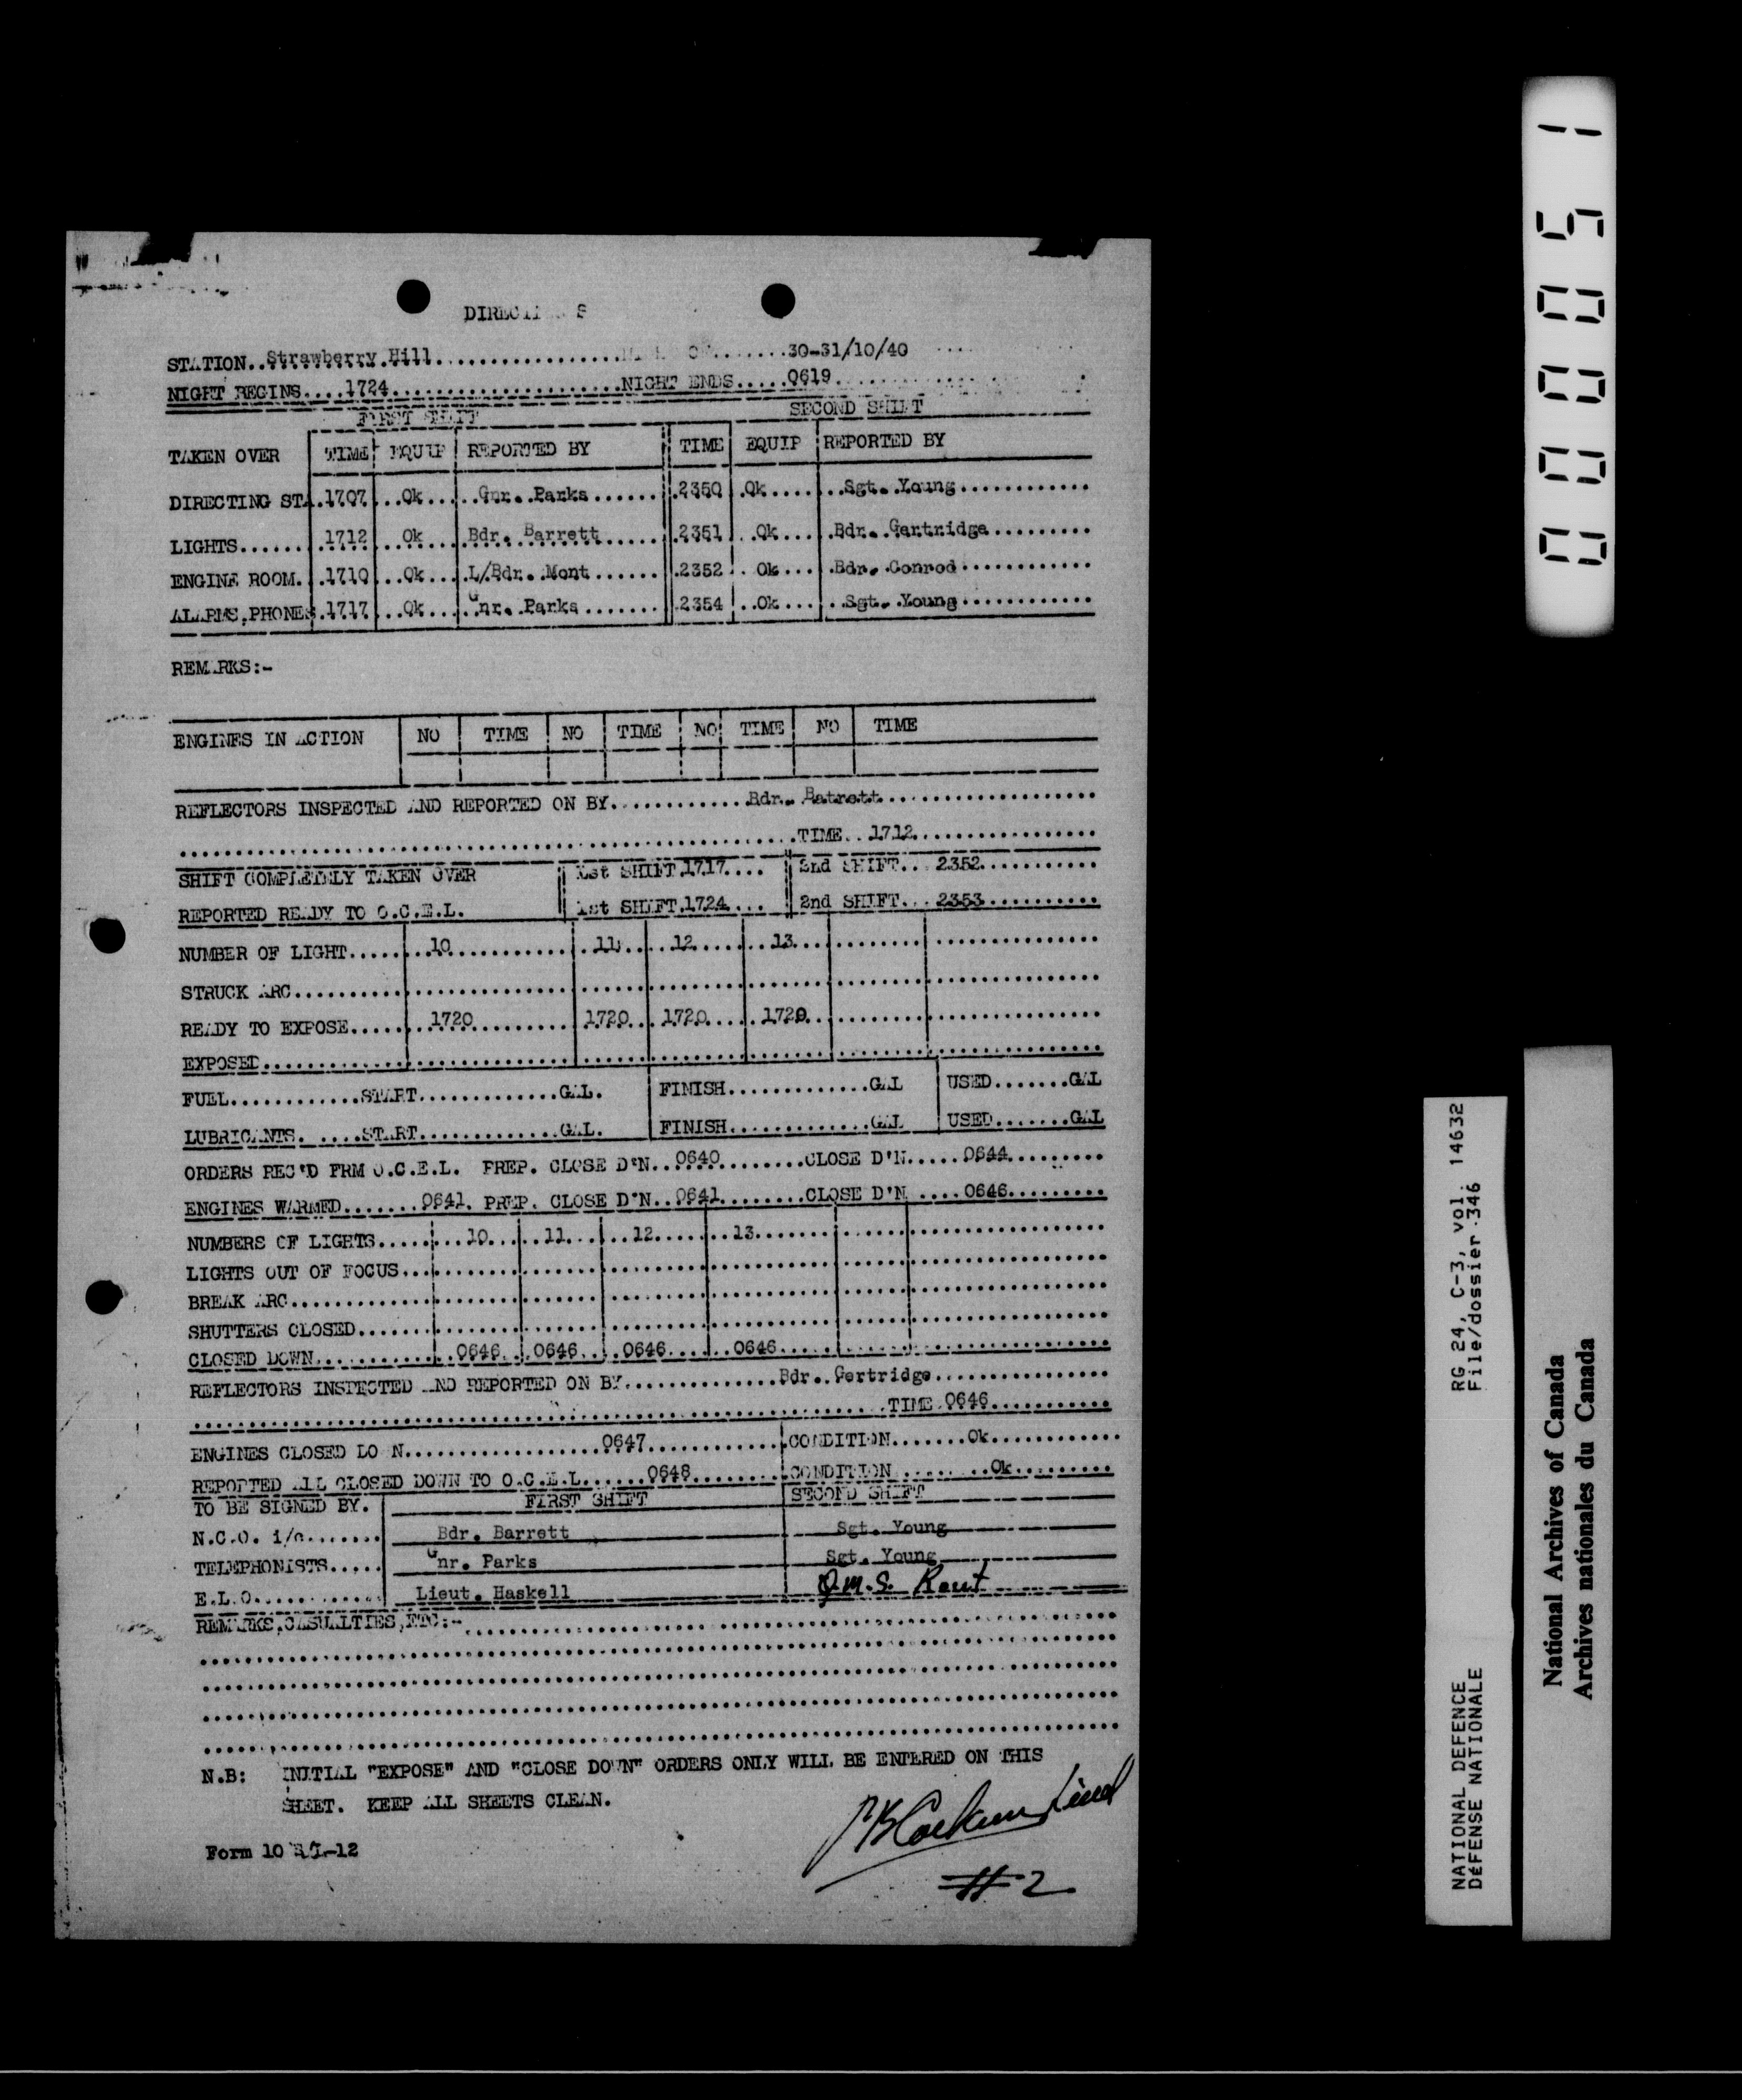 STATION..Strawberry Hill....................30-31/10/40
NIGHT BEGINS....1724.......................NIGHT ENDS.....0619
FIRST SHIFT SECOND SHIFT
TAKEN OVER TIME EQUIP REPORTED BY TIME EQUIP REPORTED BY
DIRECTING STA.1707...Ok.....Gnr. Parks.......2350..Ok.......Sgt. Young............
LIGHTS.......1712...Ok....Bdr. Barrett.......2351..Ok.....Bdr. Gertridge..........
ENGINE ROOM..1710...Ok....L/Bdr. Mont.......2352..Ok.....Bdr. Conrod............
ALARMS,PHONES.1717...Ok....Gnr. Parks.......2354...Ok......Sgt. Young............
REMARKS:-
ENGINES IN ACTION NO TIME NO TIME NO TIME NO TIME
REFLECTORS INSPECTED AND REPORTED ON BY............Bdr. Batrett....................
TIME..1712................
SHIFT COMPLETELY TAKEN OVER 1st SHIFT.1717.... 2nd SHIFT...2352..........
REPORTED READY TO O.C.E.L. 1st SHIFT.1724... 2nd SHIFT...2353..........
NUMBER OF LIGHT.......10.............11.....12.......13.....
STRUCK ARC..........
READY TO EXPOSE.......1720..........1720...1720.....1720...
EXPOSED..............
FUEL............START.............GAL. FINISH.............GAL USED.......GAL
LUBRICANTS. ....START.............GAL. FINISH.............GAL USED.......GAL
ORDERS REC'D FRM O.C.E.L. PREP. CLOSE D'N..0640.........CLOSE D'N.....0644.........
ENGINES WARMED.......0641. PREP. CLOSE D'N..0641........CLOSE D'N ....0646.........
NUMBERS OF LIGHTS........10.....11.....12.......13.......
LIGHTS OUT OF FOCUS...
BREAK ARC..............
SHUTTERS CLOSED.......
CLOSED DOWN............0646...0646....0646......0646.....
REFLECTORS INSPECTED AND REPORTED ON BY..............Bdr. Gertridge................
TIME.0646...........
ENGINES CLOSED DO N..................0647............CONDITION.......Ok............
REPORTED ALL CLOSED DOWN TO O.C.E.L......0648........CONDITION.........Ok.........
TO BE SIGNED BY. FIRST SHIFT SECOND SHIFT
N.C.O. i/c....... Bdr. Barrett Sgt. Young
TELEPHONISTS..... Gnr. Parks Sgt. Young
E.L.O............ Lieut. Haskell Q.M.S. Kent
REMARKS,CASUALTIES,ETC:-
N.B: INITIAL "EXPOSE" AND "CLOSE DOWN" ORDERS ONLY WILL BE ENTERED ON THIS
SHEET. KEEP ALL SHEETS CLEAN.
Lieut
Form 10 -12
#2
000051
RG 24, C-3, vol. 14632
File/dossier 346
NATIONAL DEFENCE
DéFENSE NATIONALE
National Archives of Canada
Archives nationales du Canada